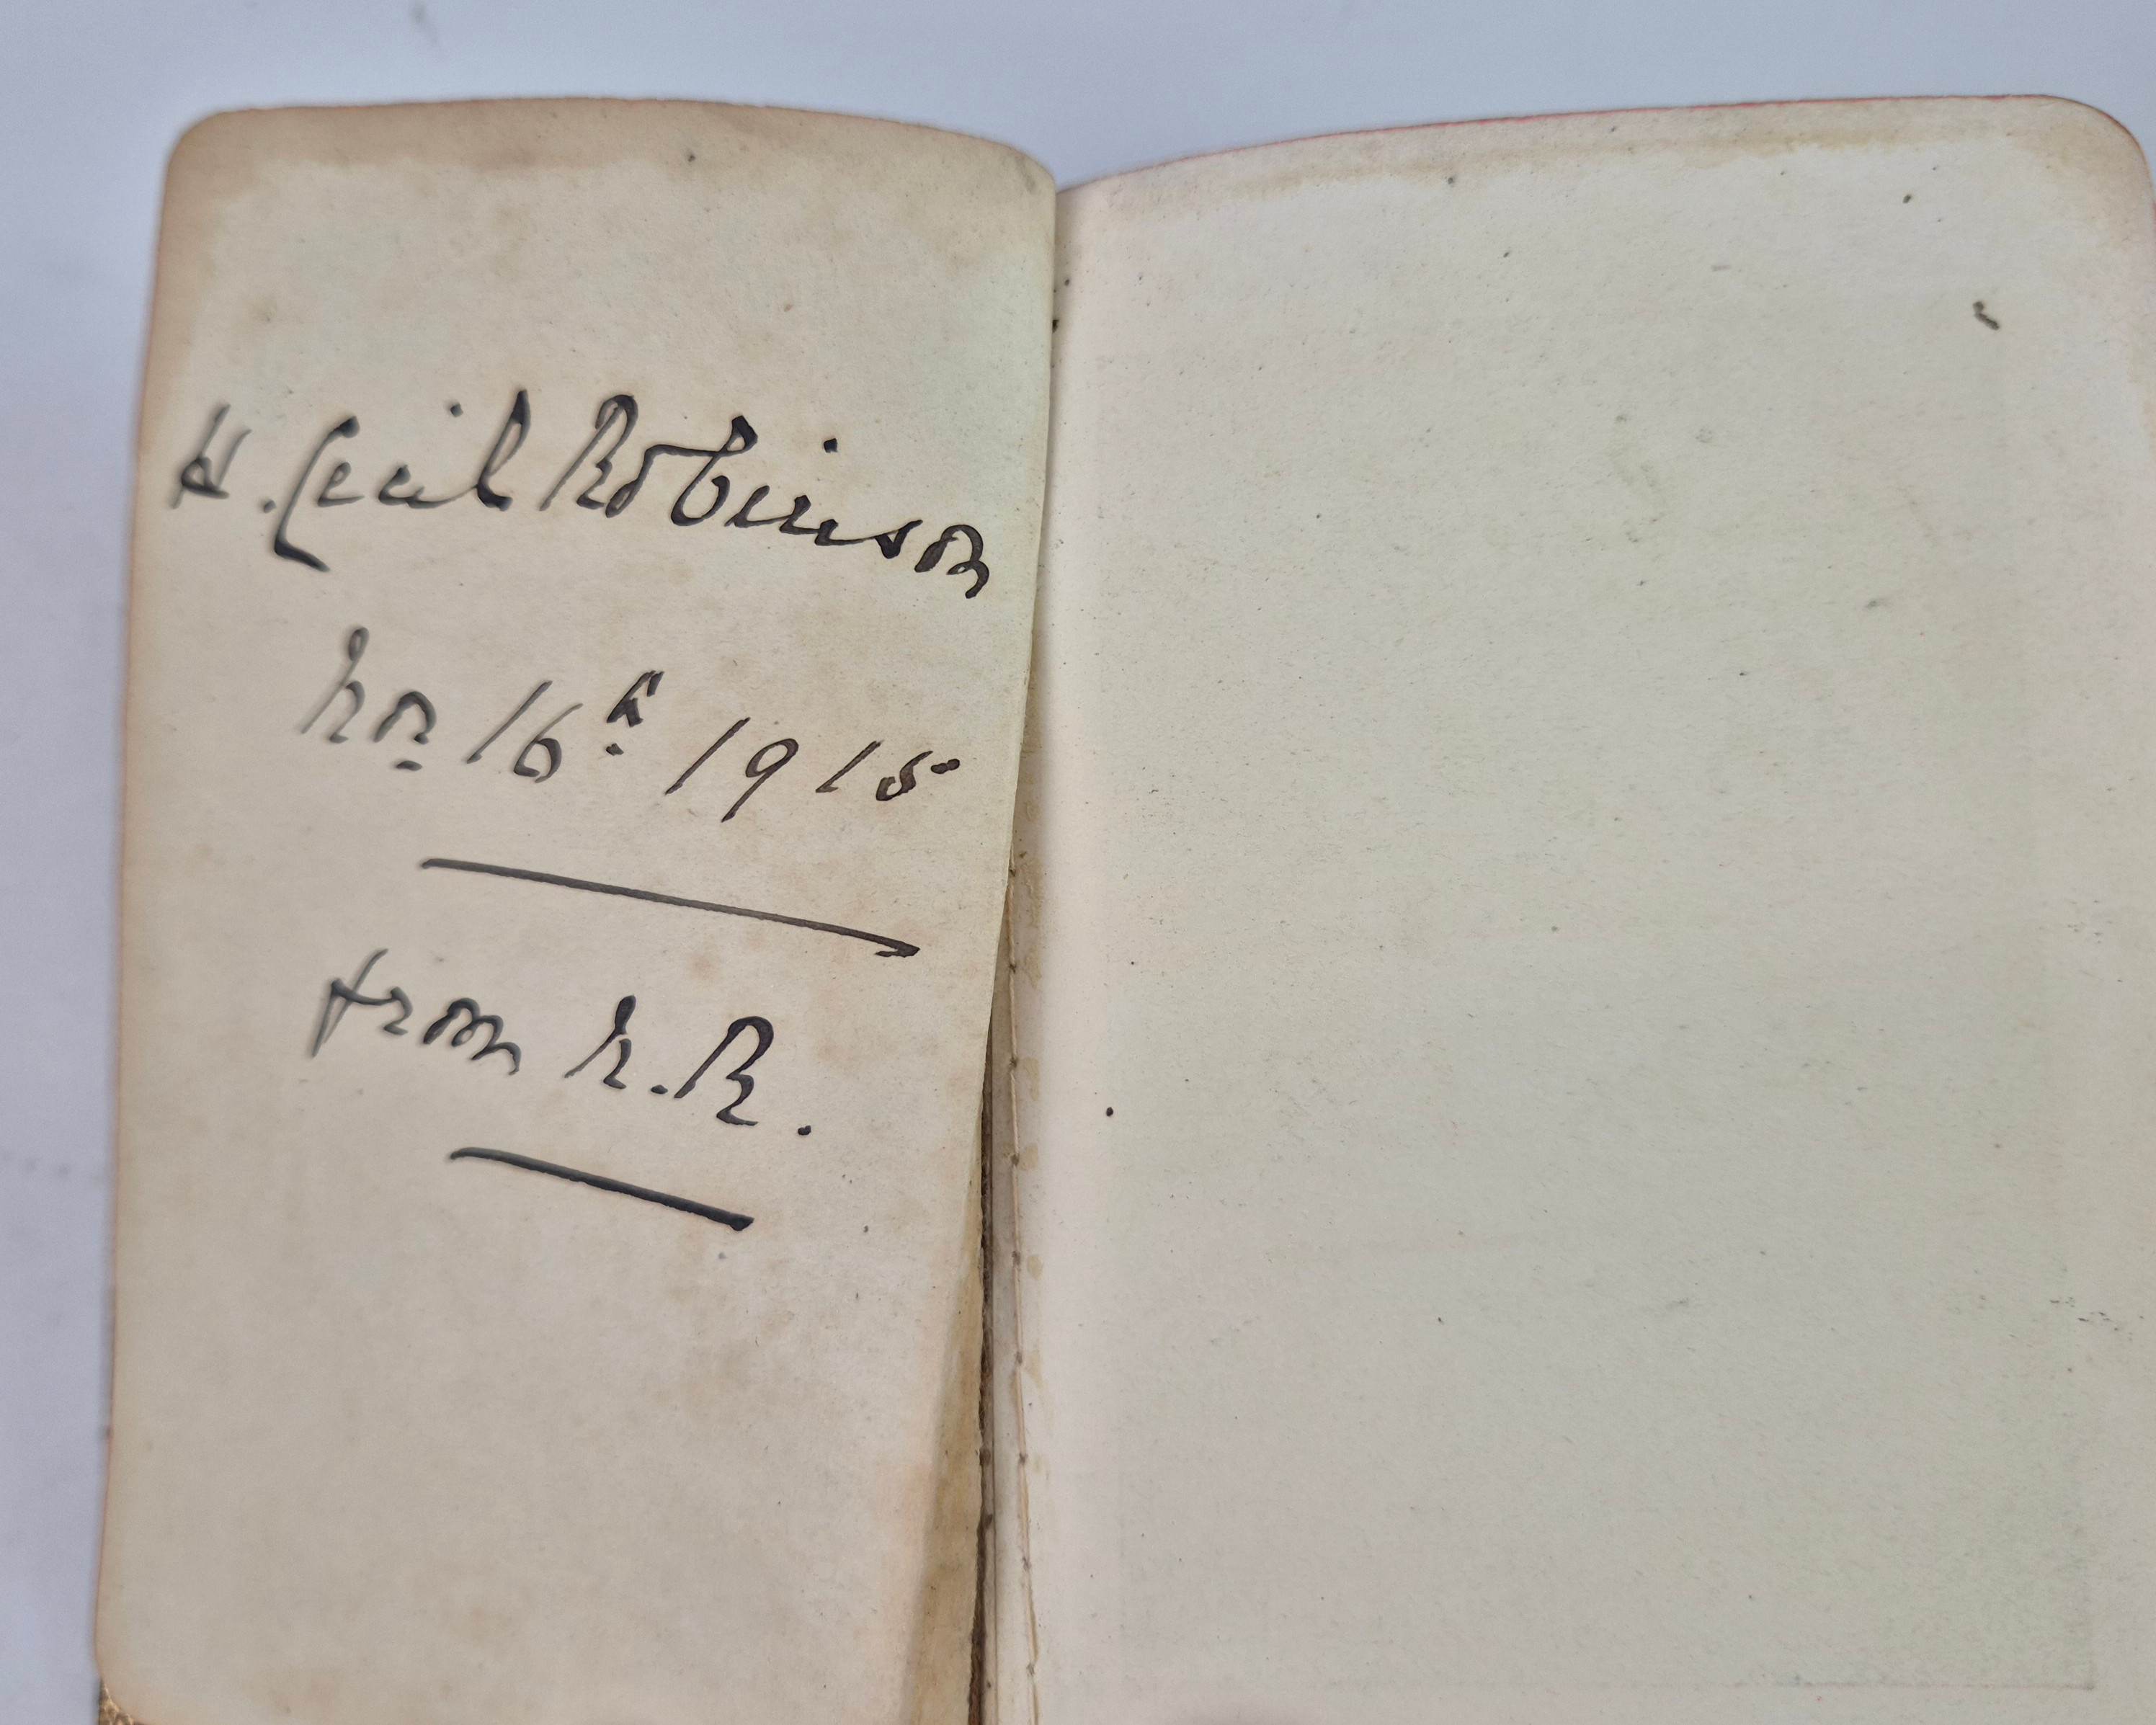 H. Cecil Robinson
Nov 16th 1915
from N.R.